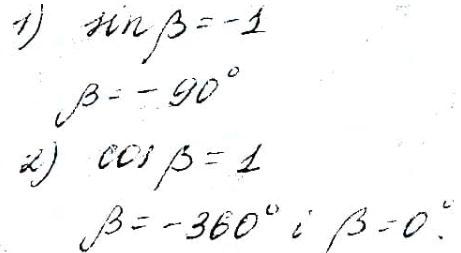 1) sin β = -1
β = -90°
2) cos β = 1
β = -360° i β = 0°.